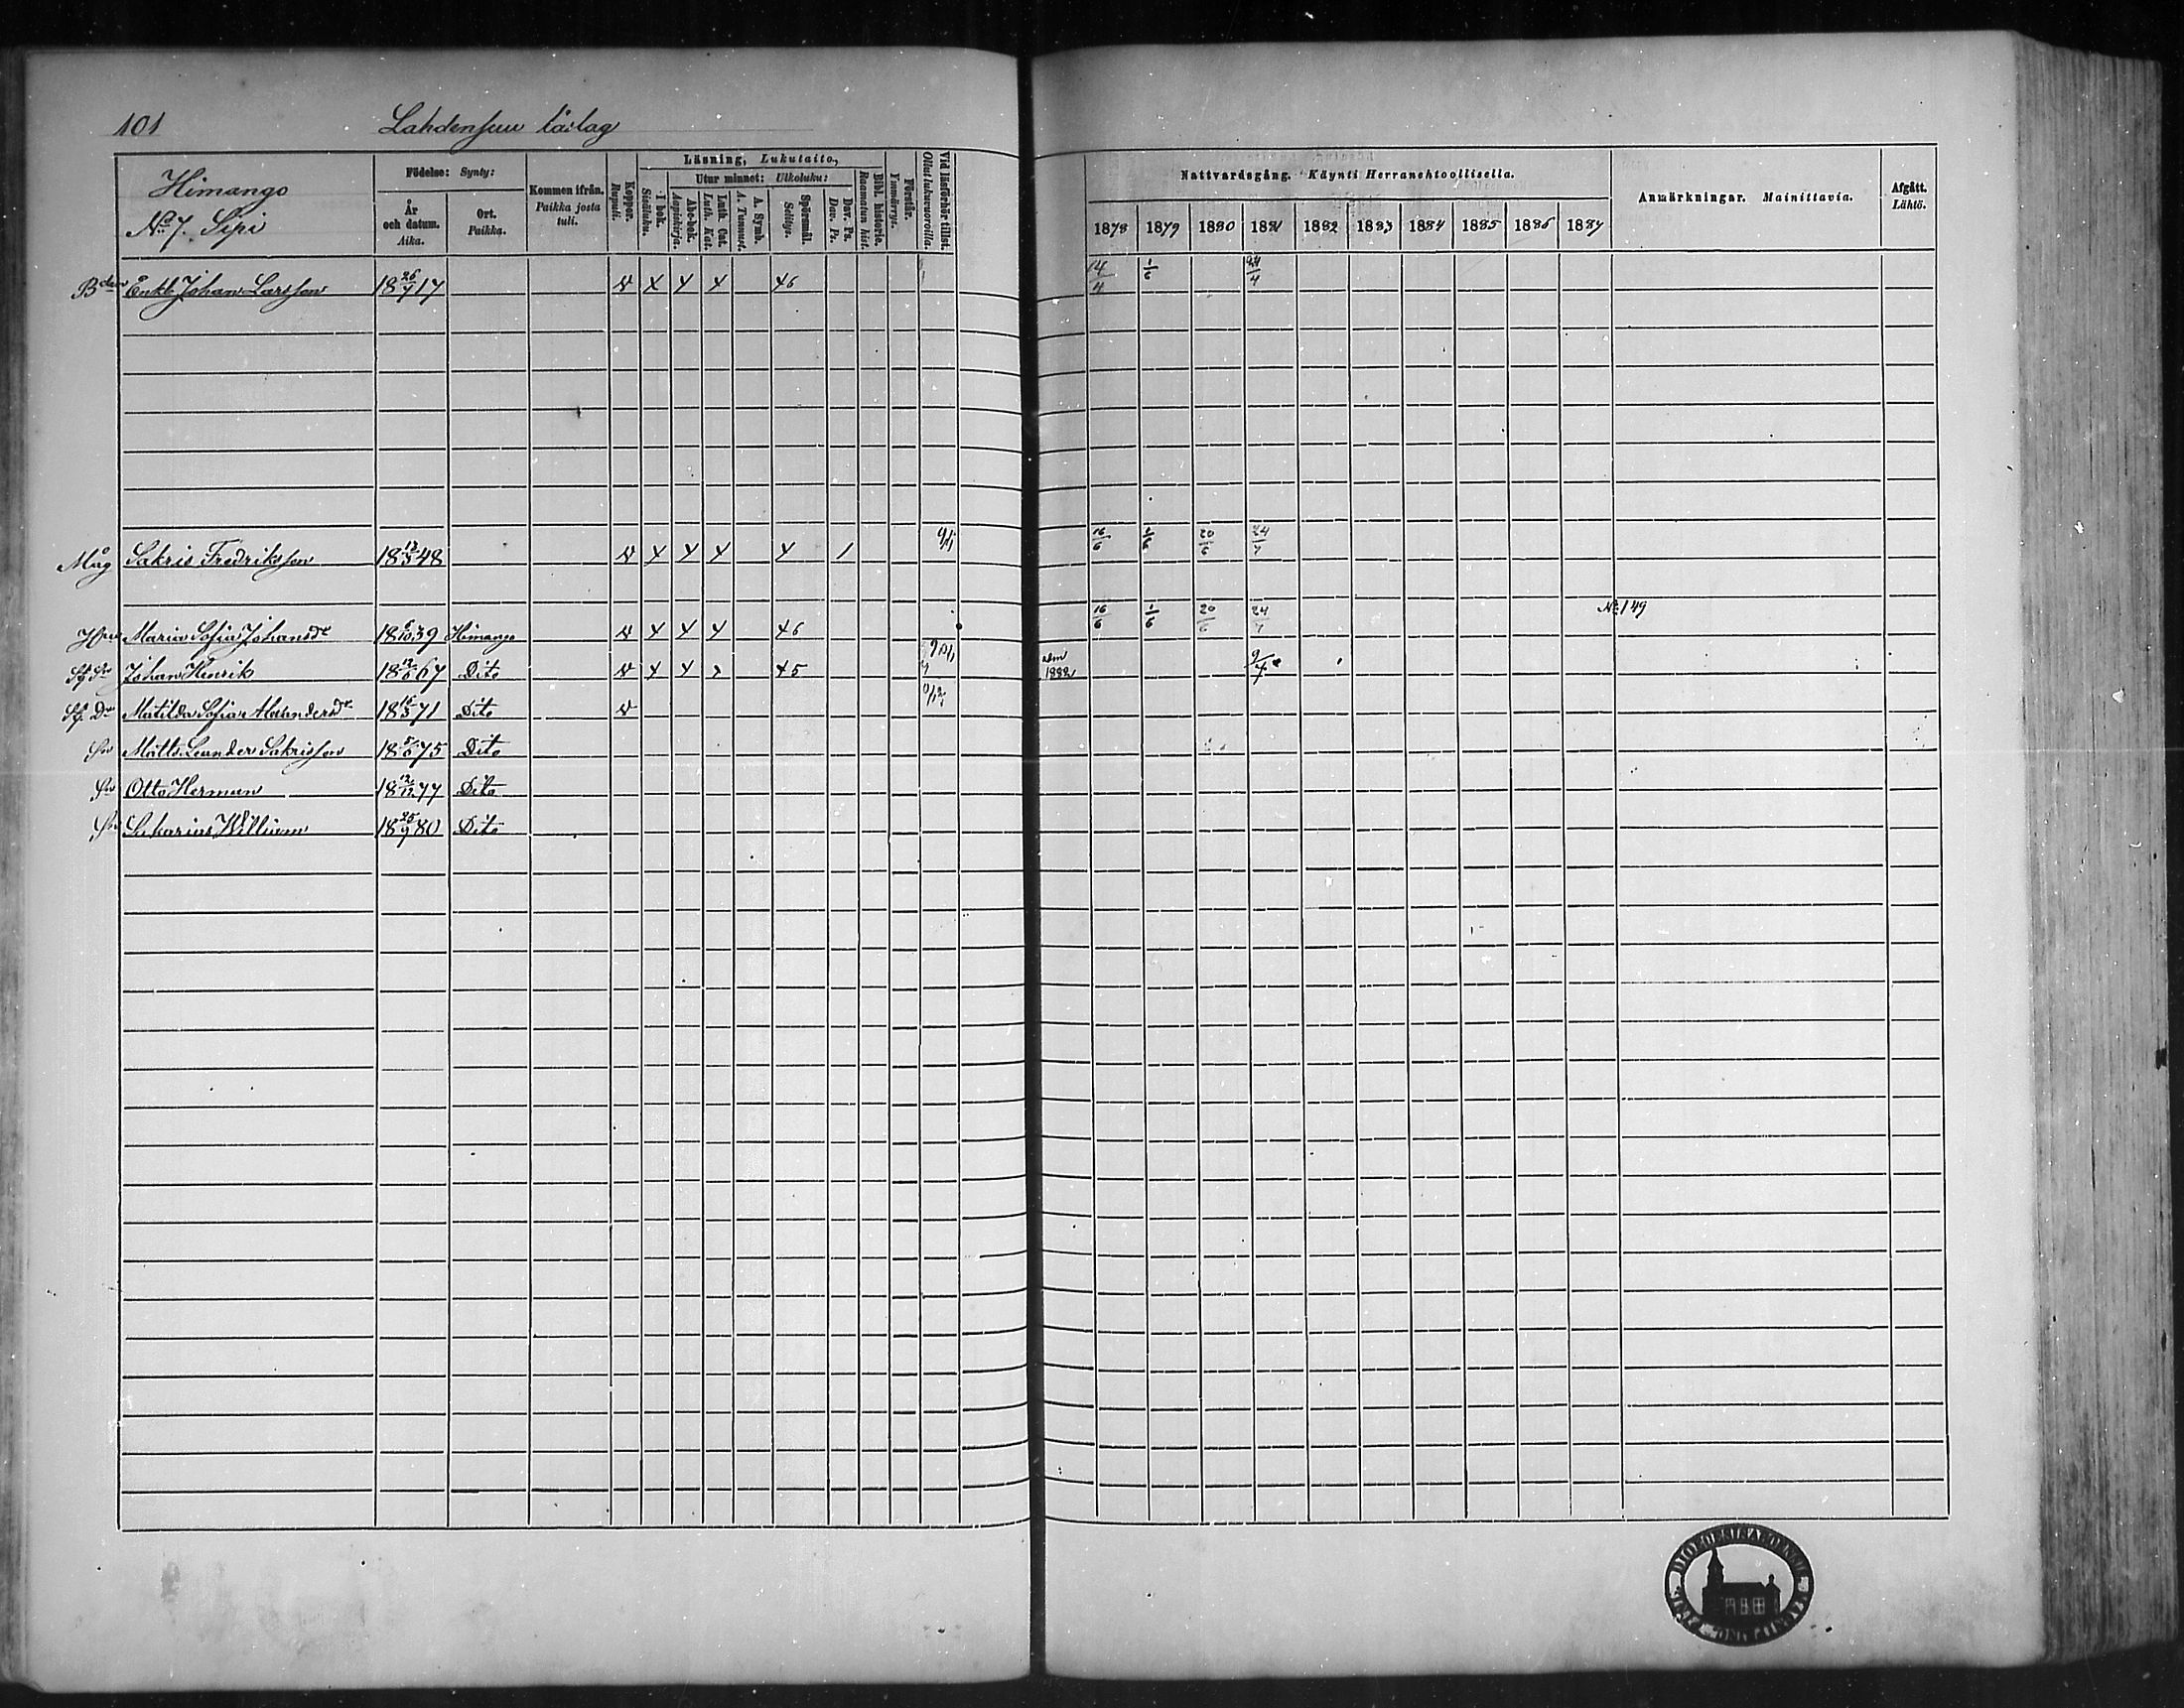 101 Lahdensuu låslag
Himango
No 7. Sipi
Födelse: Synty:
År och datum. Aika.
Ort. Paikka.
Kommen ifrån. Paikka josta tuli.
Koppor. Rupuli.
Läsning, Lukutaito,
I bok. Sisäluku.
Utur minnet: Ulkoluku:
Abc-bok. Aapiskirja.
Luth. Cat. Luth. Kat.
A. Symb. A. Tunnust.
Spörsmål. Selitys.
Dav. Ps. Dav. Ps.
Bibl. historie. Raamatun hist.
Förstår. Ymmärrys.
Vid läsförhör tillst. Ollut lukuvuoroilla.
Nattvardsgång. Käynti Herranehtoollisella.
1878 1879 1880 1881 1882 1883 1884 1885 1886 1887
Anmärkningar. Mainittavia.
Afgått. Lähtö.
Enkl. Johan Larsson 18 26/7 17 v x x x x6 14/4 1/6 24/4
Måg Sakris Fredriksson 18 48 v x x x x 1 16/6 1/6 20/6 24/7
Maria Sofia Johansdr 18 6/10 39 Himango v x x x x6 16/6 1/6 20/6 24/7 No 149
Johan Henrik 18 67 Dito v x x x x5 adm 1882
Matilda Sofia Alexandersdr 18 71 Dito v
Sn Matts Leander Sakrisson 18 75 Dito
Sn Otto Herman 18 12/12 77 Dito
Sn Sakarias William 18 25/9 80 Dito